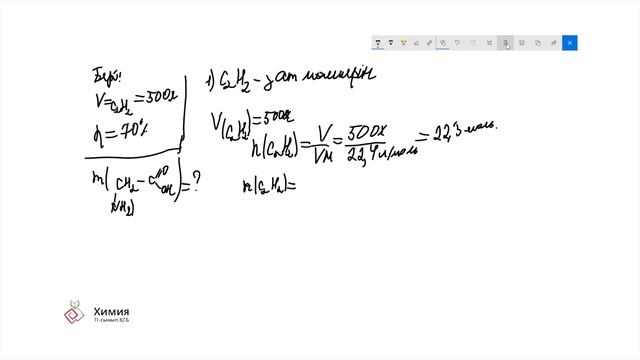 Бер:
V C₂H₂ = 500л
η = 70%
m(CH₂ – C =O OH) = ?
NH₂
1) C₂H₂ – зат мөлшерін
V(C₂H₂) = 500л
n(C₂H₂) = V/Vм = 500л/22,4 л/моль = 22,3 моль.
n(C₂H₂) =
Химия
11-сынып ҚГБ